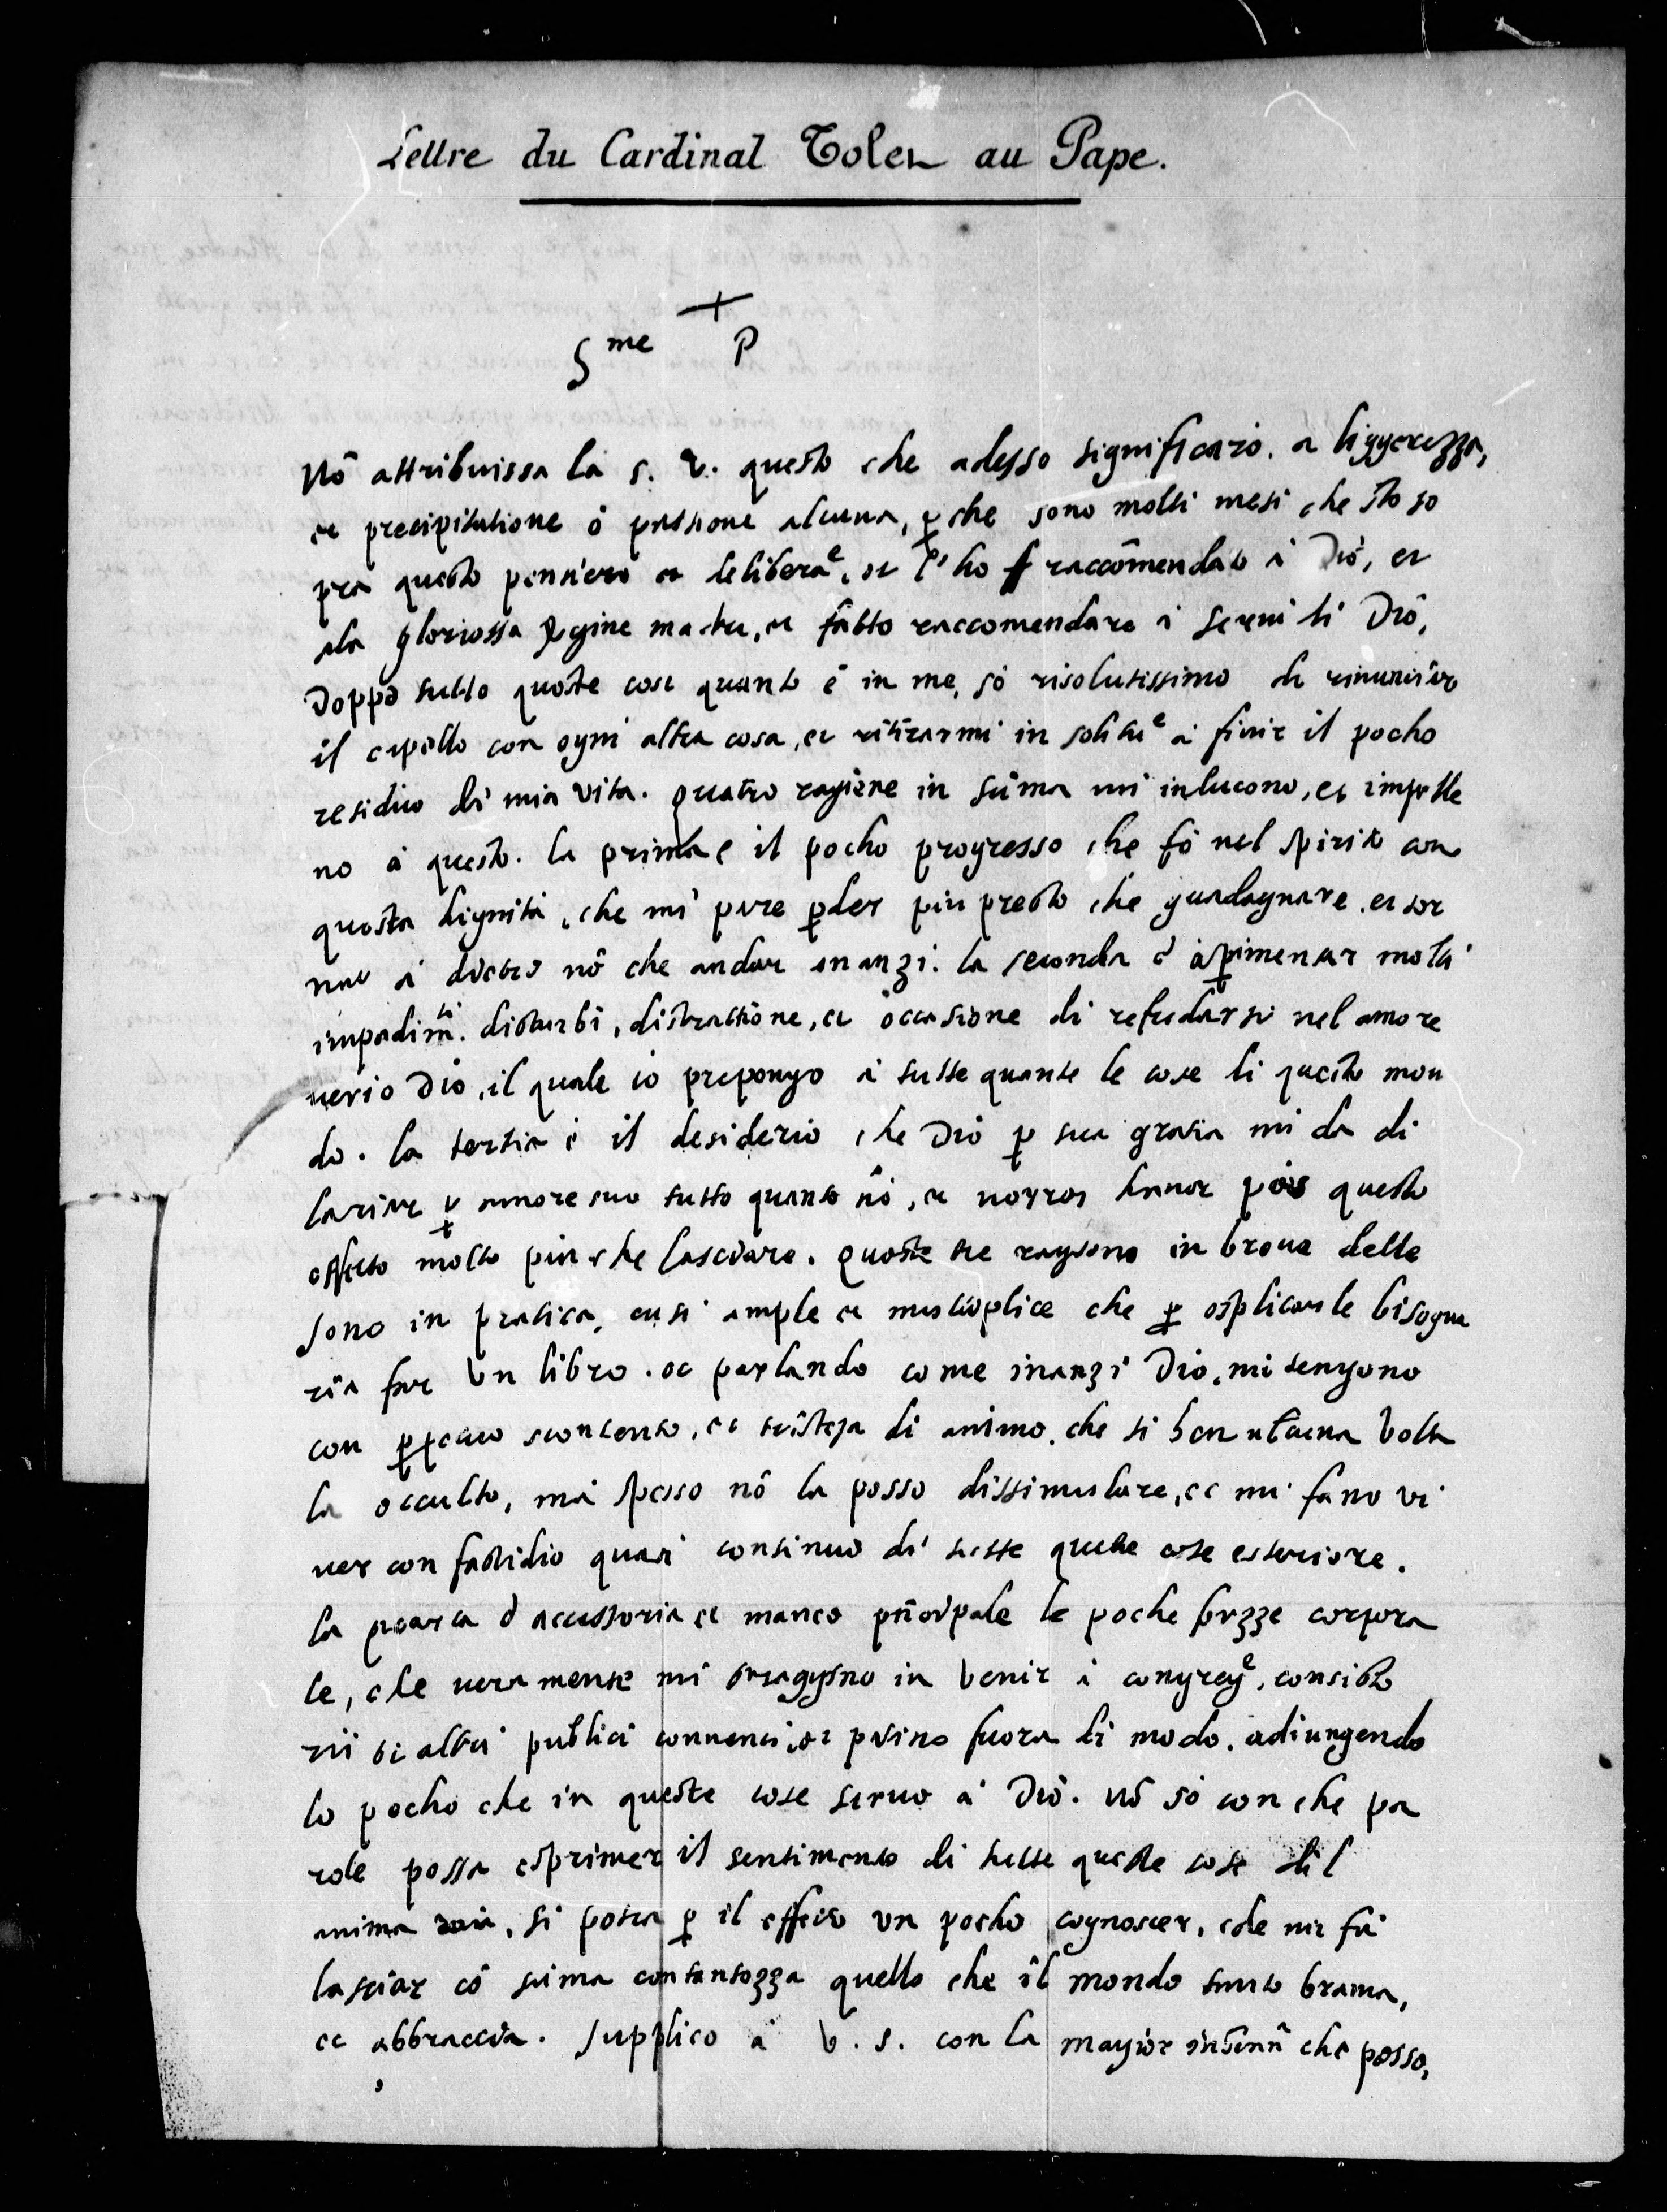 Lettre du Cardinal Tolet au Pape.
+
S me P
Nô attribuissa la s. v. questo che adesso significarò. a liggerezza,
et precipitatione ó passione alcuna, p che sono molti mesi che sto so
pra questo pensiero et deliberae, et l'ho raccômendato á Dio, et
ala gloriossa Vgine matre, et fatto raccomendare á serui di Dio,
Doppo tutto queste cose quanto é in me, só risolutissimo di rinunciar
il capello con ogni altra cosa, et ritirarmi in solitue á finir il pocho
residuo di mia vita. quatro ragione in sûma mi inducono, et impelle
no á questo. la prima é il pocho progresso che fó nel spirito con
questa dignitá, che mi pare pder piu presto che guadagnare. et tor
nar á dietro nô che andar inanzi. la seconda é pimentar molti
impedimti. disturbi, distractione, et occasione di refredarsi nel amore
uerso Dio, il quale io prepongo á tutte quante le cose di questo mon
do. la tertia é il desiderio che Dio p sua gratia mi da di
lasciar p amore suo tutto quanto hó, et questo
effetto molto piu che lasciare. queste tre ragione in breue dette
sono in pratica, cusi ample et multiplice che p esplicarle bisogna
ria far un libro. et parlando come inanzi Dio, mi tengono
con ppetuo scontento, et tristeza di animo. che si ben alcuna volta
la occulto, má spesso nô la posso dissimulare, et mi fano vi
uer con fastidio quasi continuo di tutte queste cose esteriore.
la quarta é accessoria et manco pñcipale le poche forzze corpora
le, che veramente mi in venir á congrege, consisto
rii et altri publici conuenti, et patisco fuora di modo. adiungendo
lo pocho che in queste cose seruo á Dio. nô só con che pa
role possa esprimer il sentimento di tutte queste cose dil
anima mia, si potra p il effetto un pocho cognoscer, che mi fá
lasciar có súma contentezza quello che il mondo tanto brama,
et abbraccia. supplico á v. s. con la magior che posso,